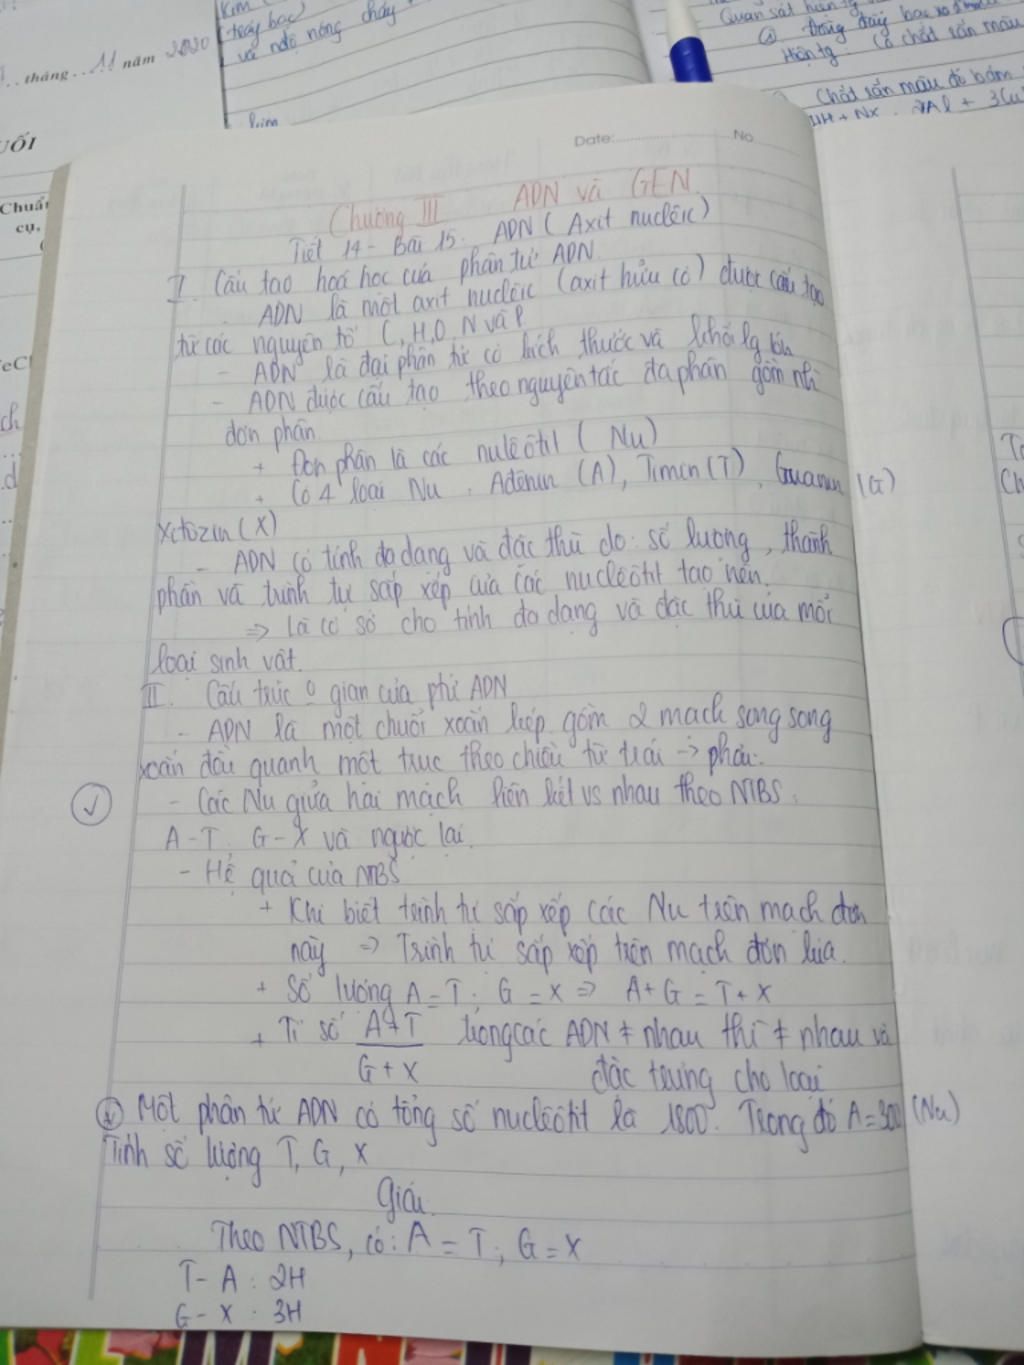 Kim
(tray bac)
và nđộ nóng chảy
kim
tháng 11 năm 2020
UỐI
Chuẩ
cụ,
FeCl
ch
d
Quan sát hiện tg
Hiện tg Có chất rắn màu
Chất rắn màu đỏ bám
2Al + 3Cu
Date: No
Chương III ADN và GEN
Tiết 14 - Bài 15: ADN (Axit nuclêic)
I. Cấu tạo hoá học của phân tử ADN.
- ADN là một axit nuclêic (axit hữu cơ) được cấu tạo
từ các nguyên tố C, H, O, N và P
- ADN là đại phân tử có kích thước và khối lg lớn
- ADN được cấu tạo theo nguyên tắc đa phân gồm nh
đơn phân
+ Đơn phân là các nulêôtit (Nu)
+ Có 4 loại Nu: Ađênin (A), Timin (T), Guanin (G)
Xitôzin (X)
- ADN có tính đa dạng và đặc thù do: số lượng, thành
phần và trình tự sắp xếp của các nuclêôtit tạo nên.
=> là cơ sở cho tính đa dạng và đặc thù của mỗi
loại sinh vật.
II. Cấu trúc o gian của ptử ADN
- ADN là một chuỗi xoắn kép gồm 2 mạch song song
xoắn đều quanh một trục theo chiều từ trái -> phải.
- Các Nu giữa hai mạch liên kết vs nhau theo NTBS:
A-T, G-X và ngược lại.
- Hệ quả của NTBS
+ Khi biết trình tự sắp xếp các Nu trên mạch đơn
này => Trình tự sắp xếp trên mạch đơn kia.
+ Số lượng A = T; G = X => A + G = T + X
+ Tỉ số A+T trong các ADN ≠ nhau thì ≠ nhau và
G+X đặc trưng cho loài
Một phân tử ADN có tổng số nuclêôtit là 1800. Trong đó A=300 (Nu)
Tính số lượng T, G, X
Giải
Theo NTBS, có: A = T; G = X
T - A : 2H
G - X : 3H
T
Ch